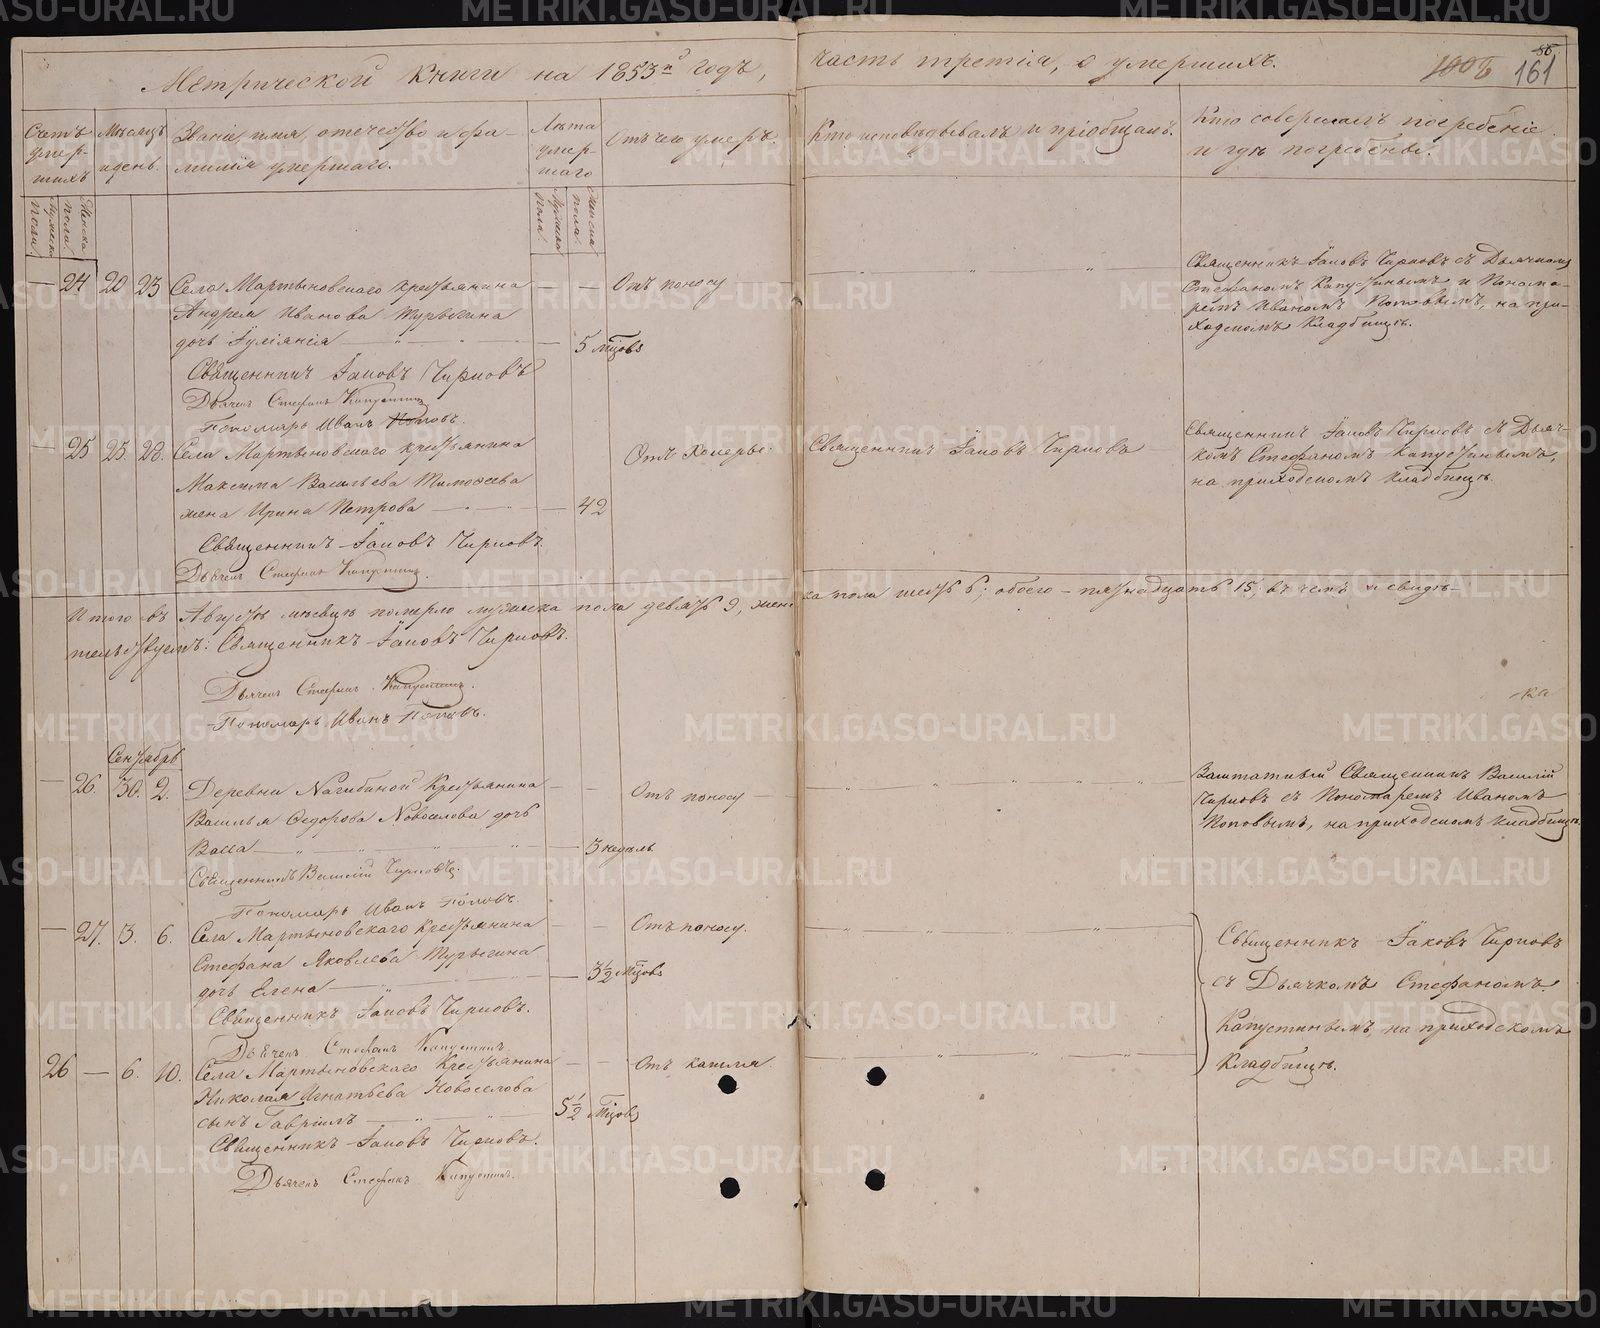 Метрической книги на 1853й годъ, часть третія, о умершихъ.
161
Счетъ умершихъ
Мѣсяцъ и день.
Званіе, имя, отечество и фамилія умершаго.
Лѣта умершаго
Отъ чего умеръ.
Кто исповѣдывалъ и пріобщалъ.
Кто совершалъ погребеніе и гдѣ погребены.
Мужеска пола.
Женска пола.
Мужеска пола.
Женска пола.
— 24 20 23 Села Мартыновскаго крестьянина — — Отъ поносу
Андрея Иванова Турыгина
дочь Іуліянія — 5 мцовъ
Священникъ Іаковъ Чирковъ съ Дьячкомъ
Стефаномъ Капустинымъ и Понома-
ремъ Иваномъ Поповымъ, на при-
ходскомъ кладбищѣ.
Священникъ Іаковъ Чирковъ
Дьячекъ Стефанъ Капустинъ
Пономарь Иванъ Поповъ.
— 25 25 28. Села Мартыновскаго крестьянина Отъ Холеры.
Максима Васильева Тимофеева
жена Ирина Петрова — 42
Священникъ Іаковъ Чирковъ
Священникъ Іаковъ Чирковъ съ Дьяч-
комъ Стефаномъ Капустинымъ,
на приходскомъ кладбищѣ.
Священникъ Іаковъ Чирковъ.
Дьячекъ Стефанъ Капустинъ.
Итого въ Августѣ мѣсяцѣ померло мужеска пола девять 9, женска пола шесть 6; обоего — пятнадцать 15, въ чемъ и свидѣ-
тельствуемъ: Священникъ Іаковъ Чирковъ.
Дьячекъ Стефанъ Капустинъ.
Пономарь Иванъ Поповъ.
-ка
Сентябрь
— 26. 30. 2. Деревни Нагибиной Крестьянина — — Отъ поносу —
Василья Федорова Новоселова дочь
Васса — 3 недѣль
Заштатный Священникъ Василій
Чирковъ съ Пономаремъ Иваномъ
Поповымъ, на приходскомъ кладбищѣ.
Священникъ Василій Чирковъ.
Пономарь Иванъ Поповъ.
— 27. 3. 6. Села Мартыновскаго Крестьянина — — Отъ поносу.
Стефана Яковлева Турыгина
дочь Елена — 3½ мцовъ
Священникъ Іаковъ Чирковъ.
Дьячекъ Стефанъ Капустинъ
26 — 6. 10. Села Мартыновскаго Крестьянина — — Отъ кашля.
Николая Игнатьева Новоселова
сынъ Гавріилъ — 5½ мцовъ
Священникъ Іаковъ Чирковъ
съ Дьячкомъ Стефаномъ
Капустинымъ, на приходскомъ
кладбищѣ.
Священникъ Іаковъ Чирковъ.
Дьячекъ Стефанъ Капустинъ.
METRIKI.GASO-URAL.RU